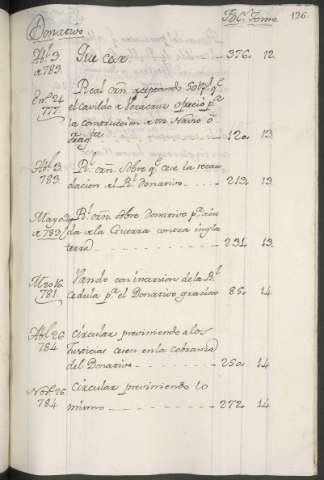 Donativo Fol.s Tomo 126
Abl. 3 783. Que cese 376. 12
En.o 24 777. Real orn. aceptando 50U p.s q.e
el cavildo de Veracruz ofrecio p.a
la construccion de un Navio ó
Frag.ta 120. 13
Ab. 3. 783. R.l orn. sobre q.e cese la recau
dacion del R.l Donativo 213. 13
Mayo 783. R.l orn. sobre Donativo p.a aiu
da de la Guerra contra Ingla
terra 231. 13
Mzo 16. 781. Vando con incersion de la R.l
cedula p.a el Donativo gracioso 85. 14
Abl. 26 784 Circular previniendo a los
Justicias cesen en la cobranza
del Donativo 250. 14
Nov.e 26. 784 Circular previniendo lo
mismo 272 14